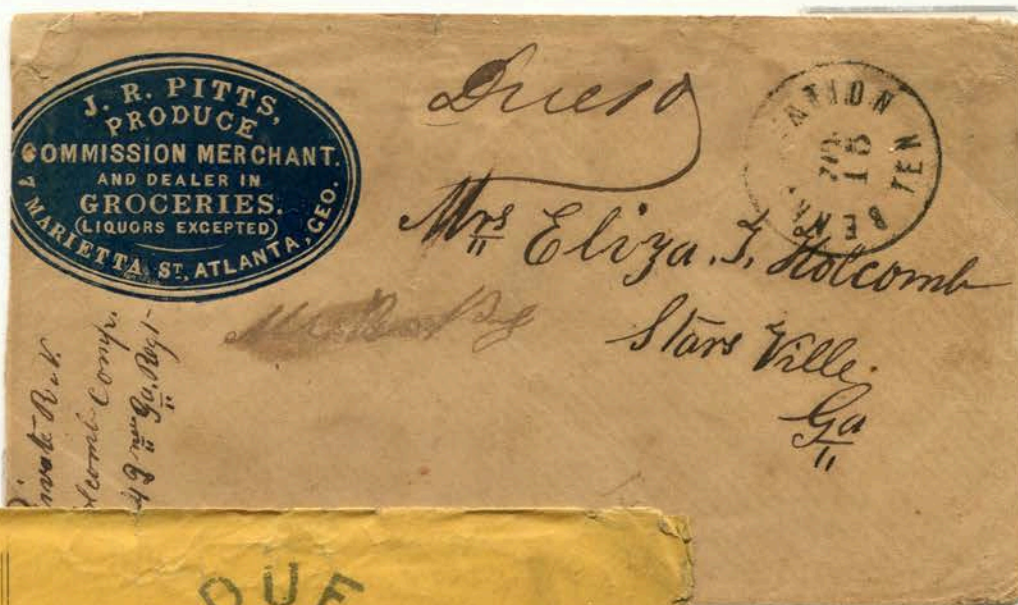 J. R. PITTS,
PRODUCE
COMMISSION MERCHANT.
AND DEALER IN
GROCERIES.
(LIQUORS EXCEPTED)
7 MARIETTA ST, ATLANTA, GEO.
Due 10
STATION TEN
NOV
18
Mrs Eliza. J. Holcomb
Stars Ville.
Ga
Private R. N.
olcomb Comp.
Ga. Regt
DUE